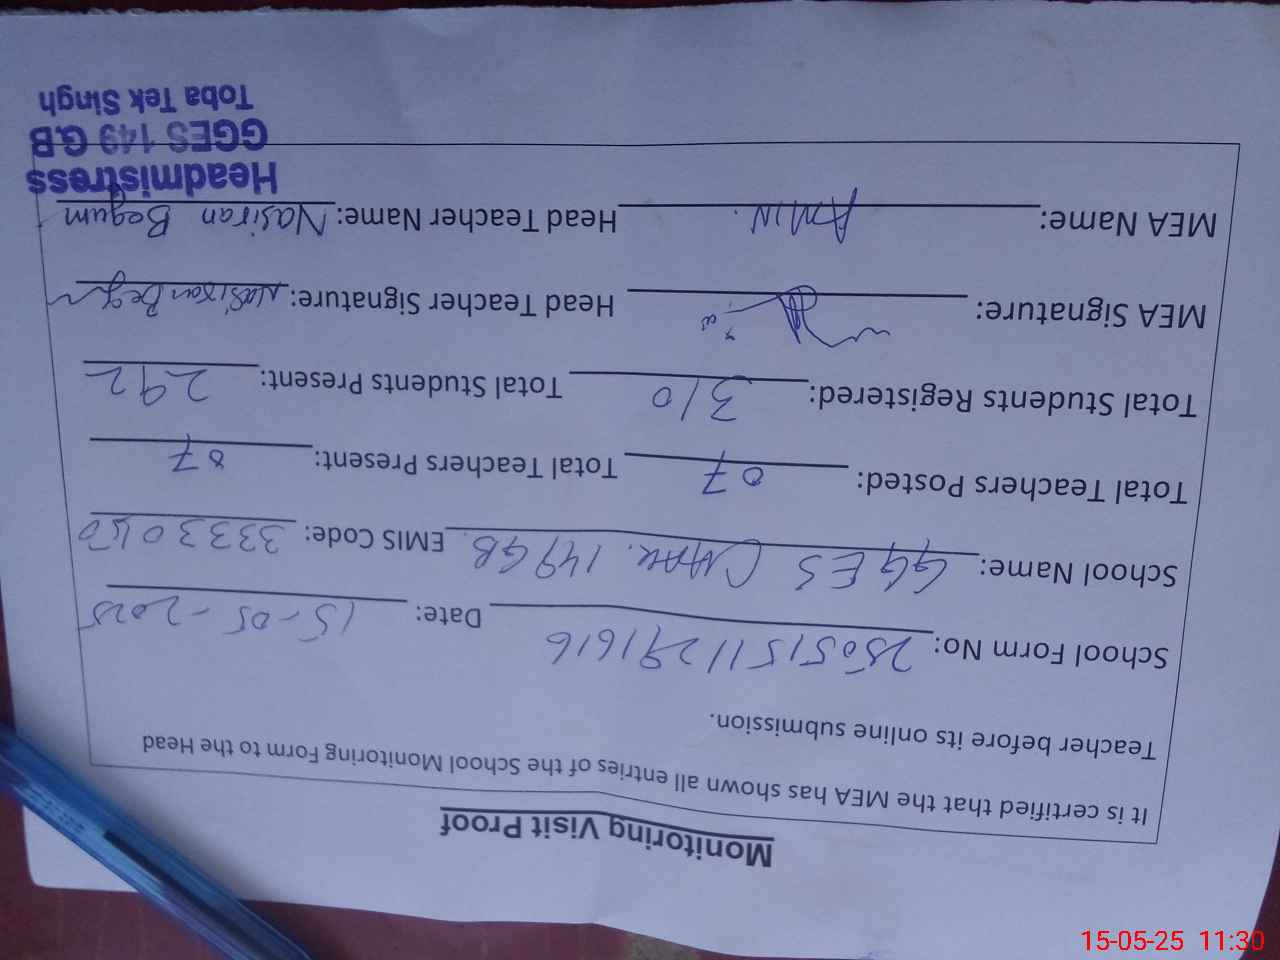 Monitoring Visit Proof
It is certified that the MEA has shown all entries of the School Monitoring Form to the Head
Teacher before its online submission.
School Form No: 2505151129 1616 Date: 15-05-2025
School Name: GGES CHAK. 149 GB. EMIS Code:
Total Teachers Posted: 07 Total Teachers Present: 07
Total Students Registered: 310 Total Students Present: 292
MEA Signature: Head Teacher Signature: Nasiran Begum
MEA Name: AMIN. Head Teacher Name: Nasiran Begum
Headmistress
GGES 149 G.B
Toba Tek Singh
15-05-25 11:30